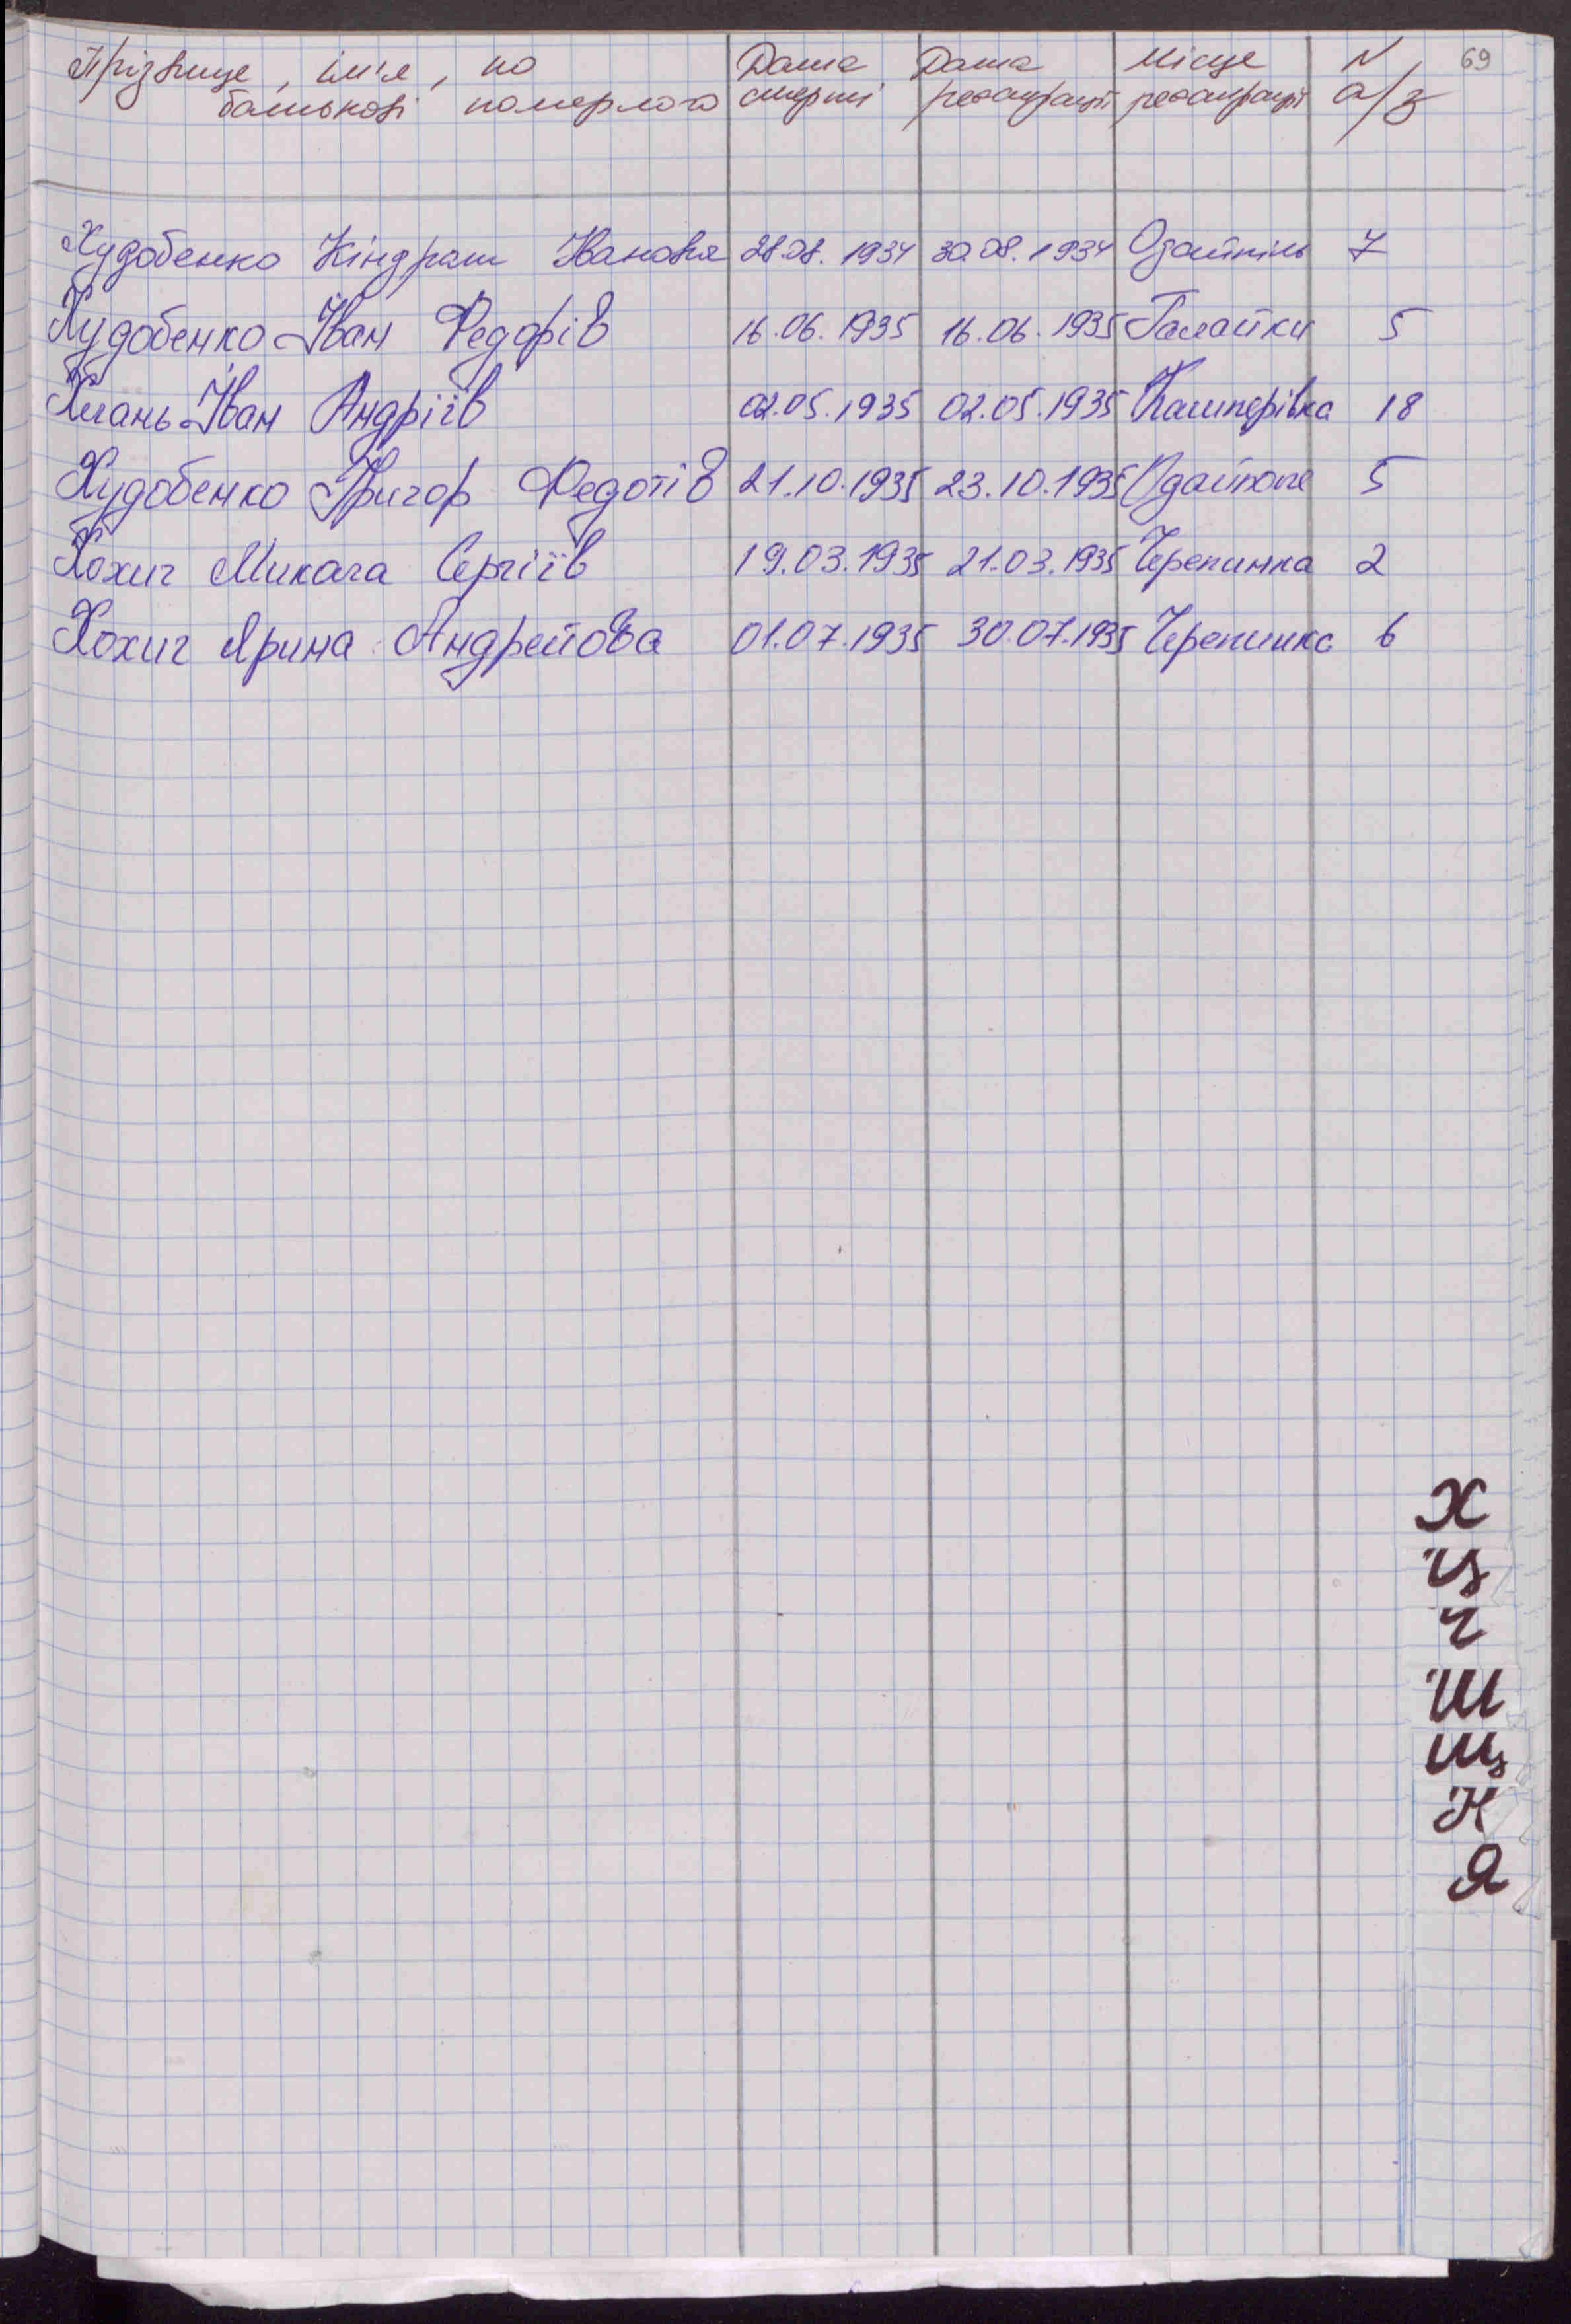 Прізвище, ім'я, по батькові померлого Дата смерті Дата реєстрації Місце реєстрації N а/з 69
Худобенко Кіндрат Іванов 28.08.1934 30.08.1934 7
Худобенко Іван Федорів 16.06.1935 16.06.1935 Галайки 5
Хмань Іван Андріїв 02.05.1935 02.05.1935 Кашперівка 18
Худобенко Григор Федотів 21.10.1935 23.10.1935 5
Хохич Микола Сергіїв 19.03.1935 21.03.1935 Черепинка 2
Хохич Ярина Андрейова 01.07.1935 30.07.1935 Черепинка 6
Х
Ц
Ч
Ш
Щ
Ю
Я